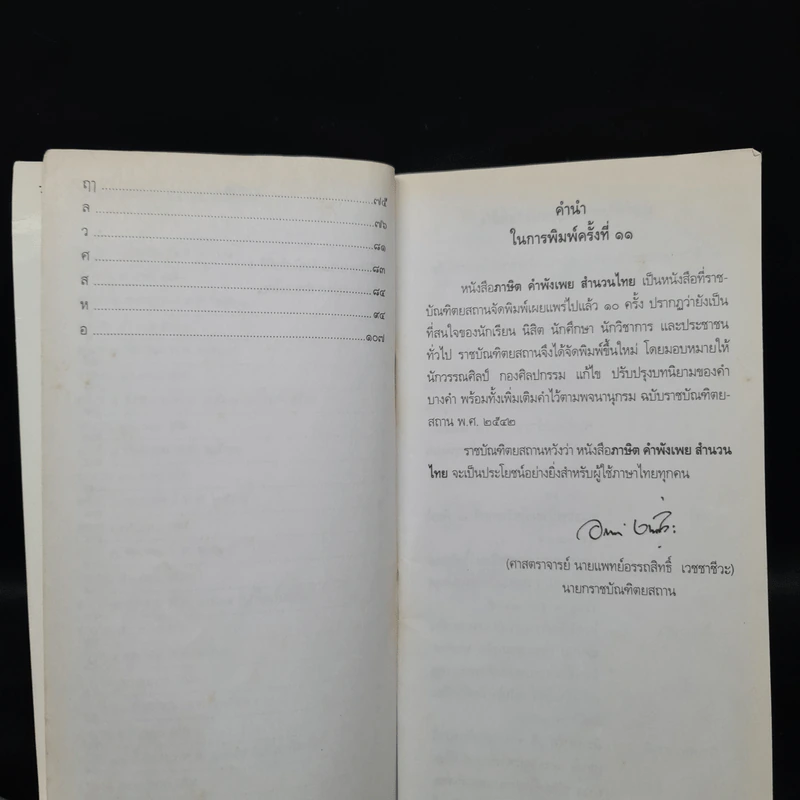 ฤๅ ........ ๗๕
ล ........ ๗๖
ว ........ ๘๑
ศ ........ ๘๓
ส ........ ๘๔
ห ........ ๙๔
อ ........ ๑๐๗
คำนำ
ในการพิมพ์ครั้งที่ ๑๑
หนังสือภาษิต คำพังเพย สำนวนไทย เป็นหนังสือที่ราช-
บัณฑิตยสถานจัดพิมพ์เผยแพร่ไปแล้ว ๑๐ ครั้ง ปรากฏว่ายังเป็น
ที่สนใจของนักเรียน นิสิต นักศึกษา นักวิชาการ และประชาชน
ทั่วไป ราชบัณฑิตยสถานจึงได้จัดพิมพ์ขึ้นใหม่ โดยมอบหมายให้
นักวรรณศิลป์ กองศิลปกรรม แก้ไข ปรับปรุงบทนิยามของคำ
บางคำ พร้อมทั้งเพิ่มเติมคำไว้ตามพจนานุกรม ฉบับราชบัณฑิตย-
สถาน พ.ศ. ๒๕๔๒
ราชบัณฑิตยสถานหวังว่า หนังสือภาษิต คำพังเพย สำนวน
ไทย จะเป็นประโยชน์อย่างยิ่งสำหรับผู้ใช้ภาษาไทยทุกคน
(ศาสตราจารย์ นายแพทย์อรรถสิทธิ์ เวชชาชีวะ)
นายกราชบัณฑิตยสถาน